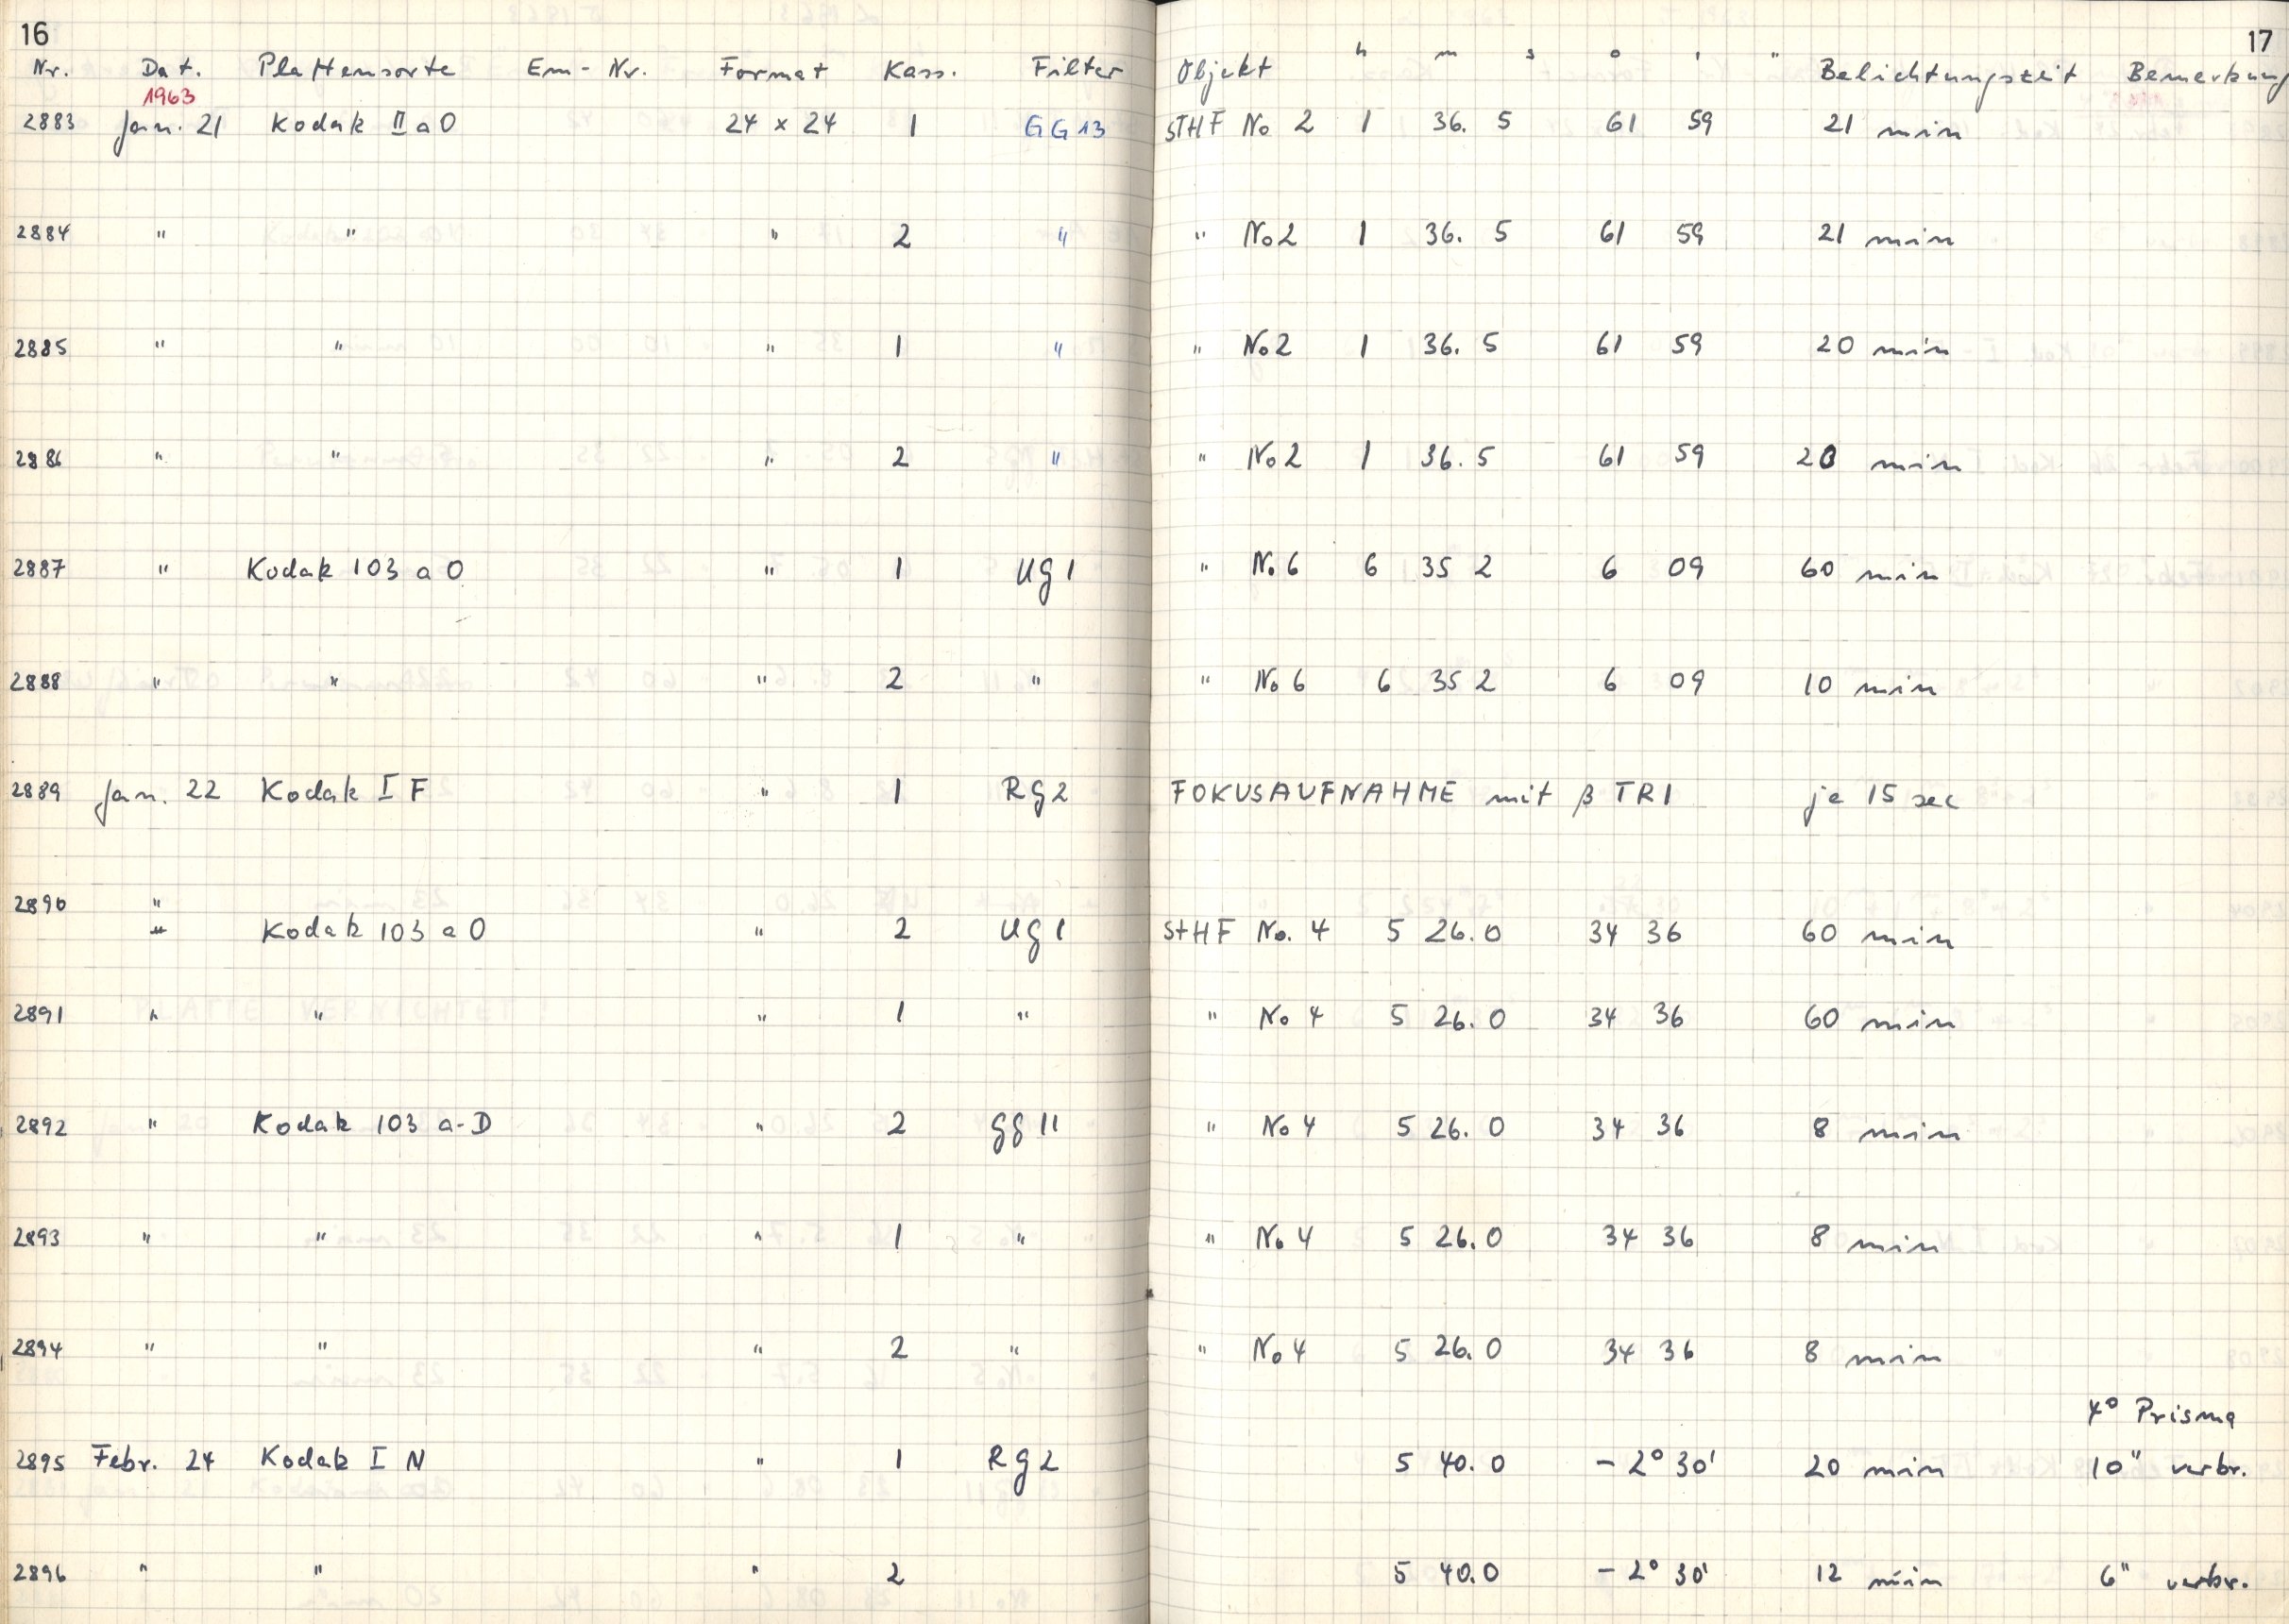 16 17
Nr. Dat. Plattensorte Em-Nr. Format Kass. Filter Objekt h m s o ' " Belichtungszeit Bemerkung
1963
2883 Jan. 21 Kodak II a O 24 x 24 1 GG 13 STHF No 2 1 36. 5 61 59 21 min
2884 " " " 2 " " No 2 1 36. 5 61 59 21 min
2885 " " " 1 " " No 2 1 36. 5 61 59 20 min
2886 " " " 2 " " No 2 1 36. 5 61 59 20 min
2887 " Kodak 103 a O " 1 UG 1 " No 6 6 35 2 6 09 60 min
2888 " " " 2 " " No 6 6 35 2 6 09 10 min
2889 Jan. 22 Kodak I F " 1 RG 2 FOKUSAUFNAHME mit β TRI je 15 sec
2890 "
" Kodak 103 a O " 2 UG 1 STHF No. 4 5 26.0 34 36 60 min
2891 " " " 1 " " No 4 5 26.0 34 36 60 min
2892 " Kodak 103 a-D " 2 GG 11 " No 4 5 26.0 34 36 8 min
2893 " " " 1 " " No 4 5 26.0 34 36 8 min
2894 " " " 2 " " No 4 5 26.0 34 36 8 min
4° Prisma
2895 Febr. 24 Kodak I N " 1 RG 2 5 40.0 - 2° 30' 20 min 10" verbr.
2896 " " " 2 5 40.0 - 2° 30' 12 min 6" verbr.